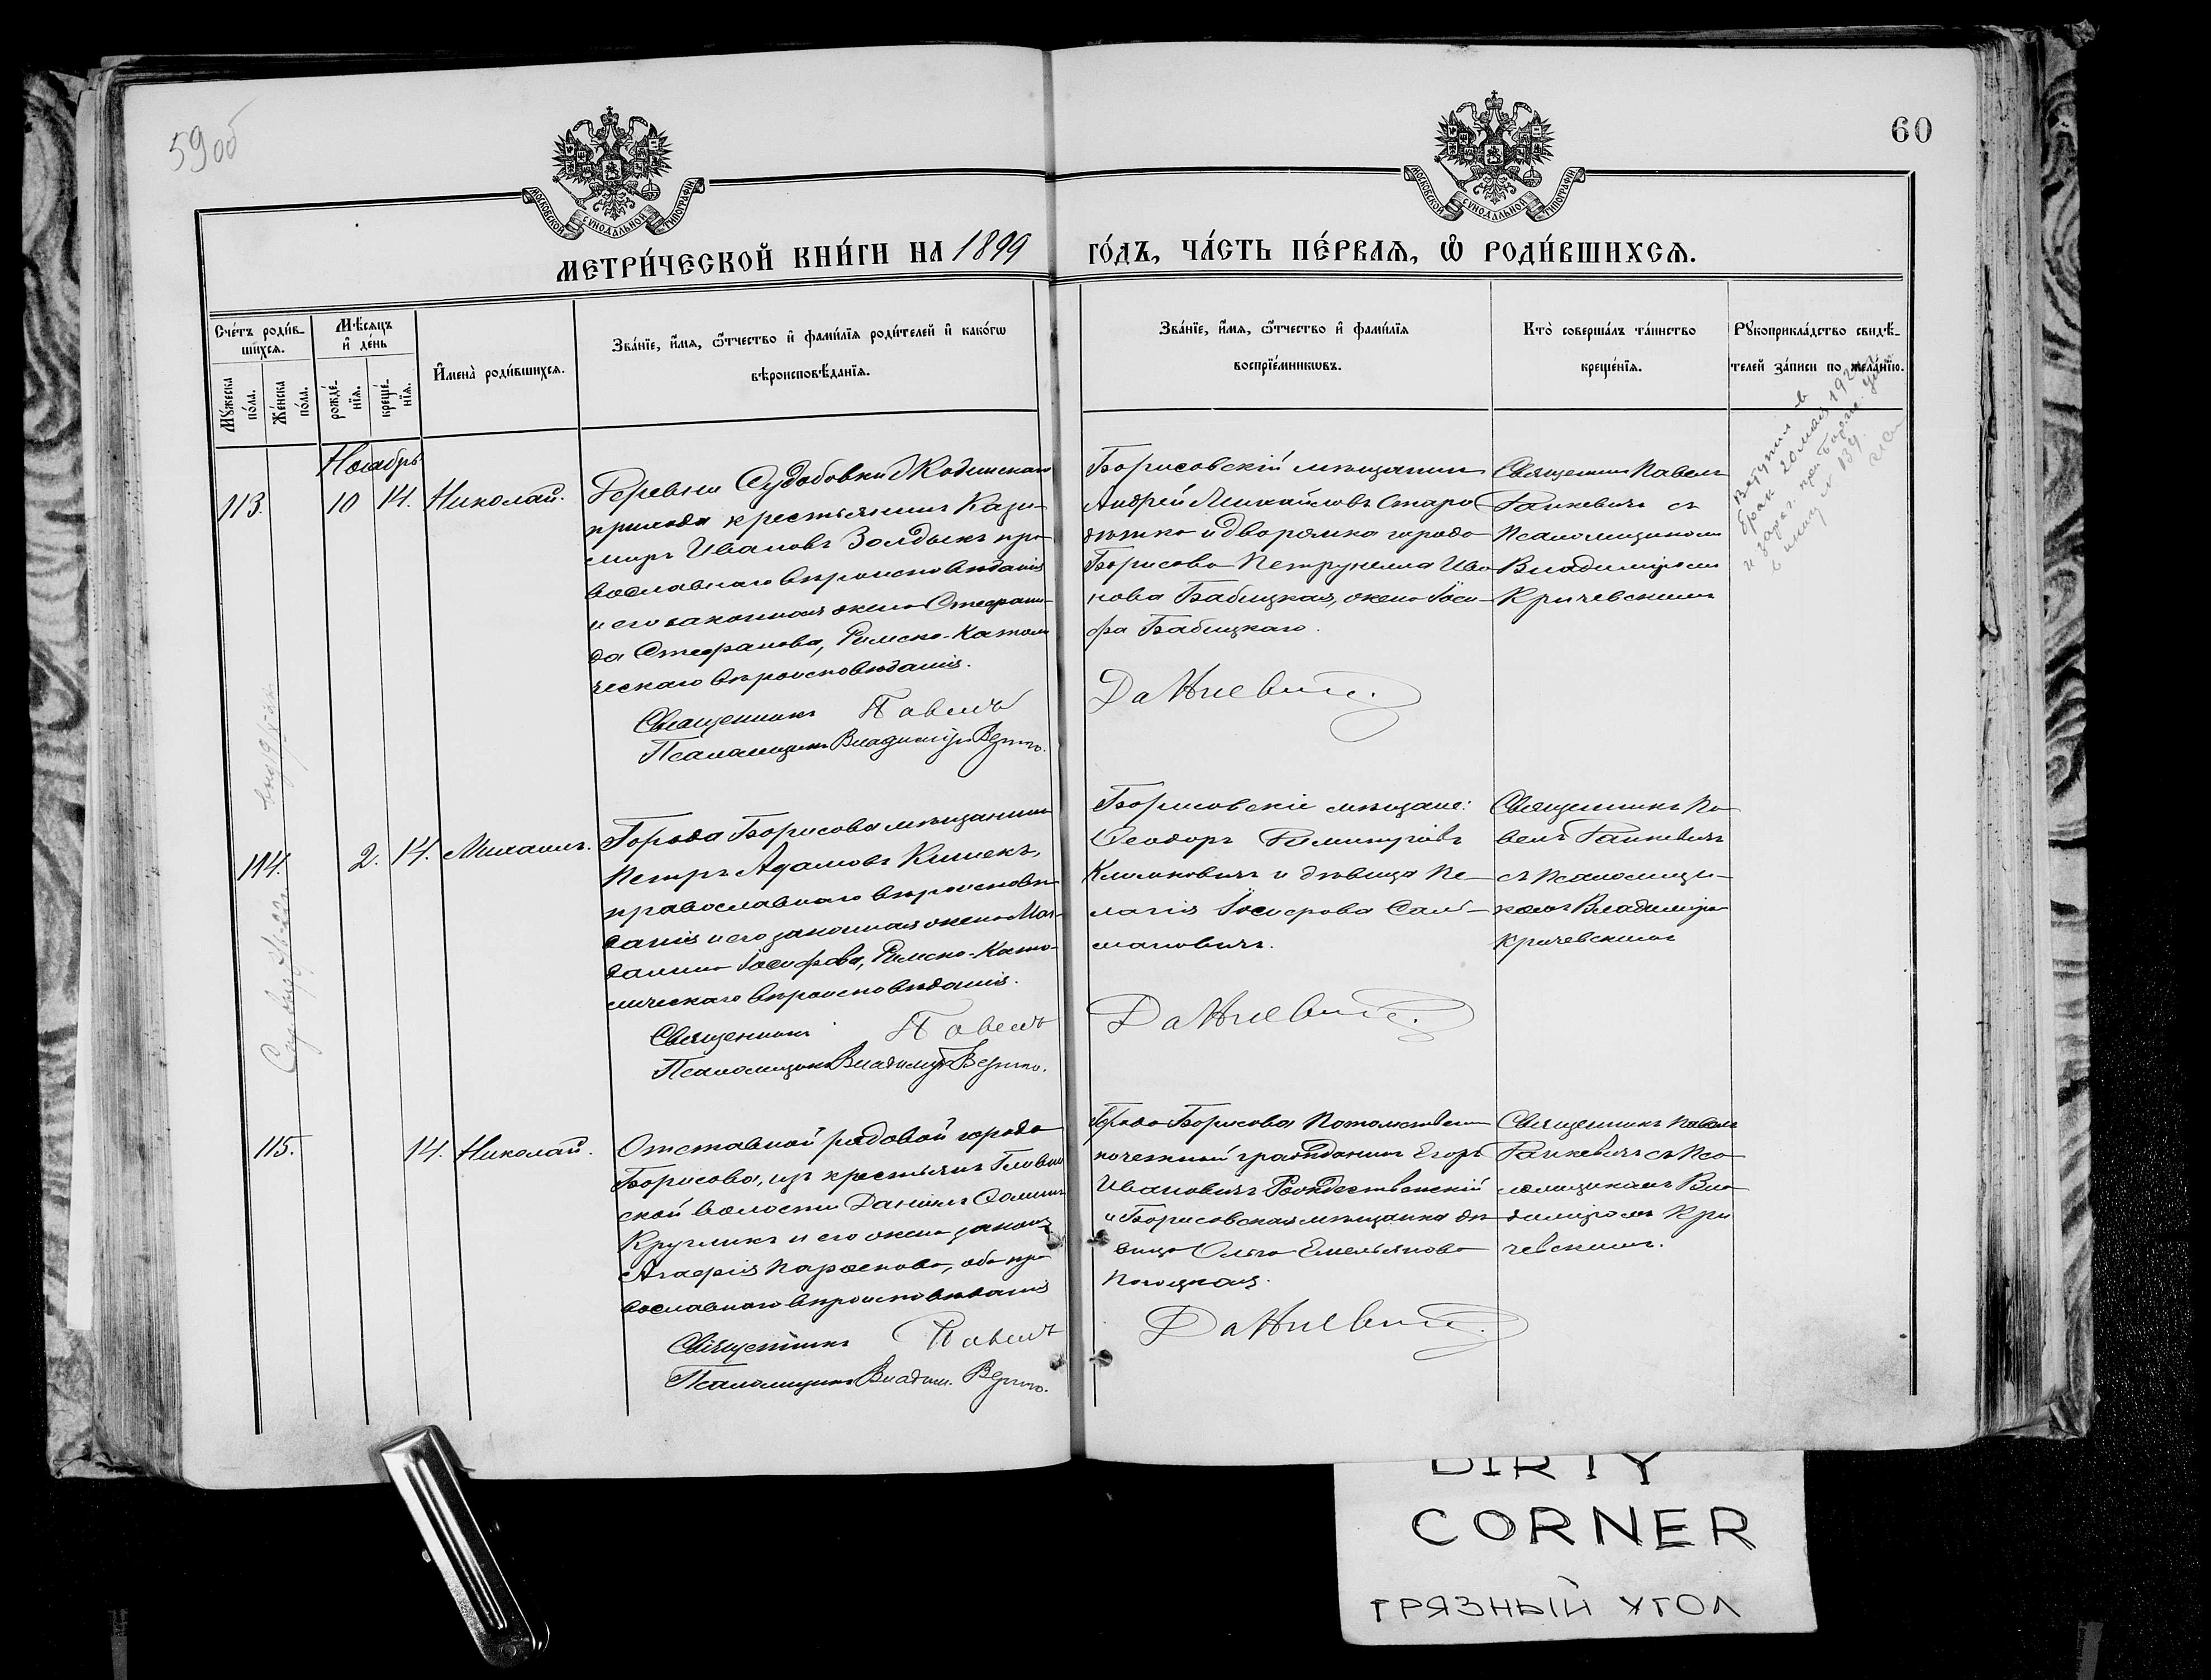 59об
60
МОСКОВСКОЙ СУНОДАЛЬНОЙ ТИПОГРАФІИ
МОСКОВСКОЙ СУНОДАЛЬНОЙ ТИПОГРАФІИ
МЕТРИ́ЧЕСКОЙ КНИ́ГИ НА 1899 ГО́ДЪ, ЧА́СТЬ ПЕ́РВАѦ, Ѡ҆ РОДИ́ВШИХСѦ.
Сче́тъ роди́в-
шихсѧ.
Мꙋ́жеска
по́ла.
Же́нска
по́ла.
Мѣ́сяцъ
и҆ де́нь
рожде́-
нїѧ.
креще́-
нїѧ.
И҆мена̀ роди́вшихсѧ.
Зва́нїе, и҆́мѧ, ѻ҆́тчество и҆ фами́лїѧ роди́телей и҆ како́гѡ
вѣроисповѣ́данїѧ.
Зва́нїе, и҆́мѧ, ѻ҆́тчество и҆ фами́лїѧ
воспрїе́мникѡвъ.
Кто̀ соверша́лъ та́инство
креще́нїѧ.
Рꙋкоприкла́дство свидѣ́-
телей за́писи по жела́нїю.
Ноябрь
113.
10
14.
Николай.
Деревни Судобовки
прихода крестьянинъ Кази-
миръ Ивановъ Золдыкъ пра-
вославнаго вѣроисповѣданія
и его законная жена Стефани-
да Стефанова, Римско-Католи
ческаго вѣроисповѣданія.
Священникъ Павелъ
Псаломщикъ Владиміръ
Борисовскій мѣщанинъ
Андрей Михайловъ Старо
дѣтко и дворянка города
Борисова Петрунелла Ива
нова Бабицкая, жена Іоси-
фа Бабицкаго.
Священникъ Павелъ
съ
Псаломщикомъ
Владиміромъ
Кричевскимъ
Вступил в
брак 20 мая 192
и зарег. при
в книгу № 139.
114.
2.
14.
Михаилъ.
Города Борисова мѣщанинъ
Петръ Адамовъ
православнаго вѣроисповѣ
данія и его законная жена Маг-
далина Іосифова, Римско-Като-
лическаго вѣроисповѣданія.
Священникъ Павелъ
Псаломщикъ Владиміръ
Борисовскіе мѣщане:
Ѳеодоръ
Климковичъ и дѣвица Пе-
лагія Іосифова Сал-
мановичъ.
Священникъ Па-
велъ
съ Псаломщи-
комъ Владиміромъ
Кричевскимъ
115.
14.
Николай.
Отставной рядовой города
Борисова, изъ крестьянъ
ской волости Даніилъ Ѳоминъ
Кругликъ и его жена законная
Агафія оба пра
вославнаго вѣроисповѣданія
Священникъ Павелъ
Псаломщикъ Владим.
Города Борисова Потомственный
почетный гражданинъ Егоръ
Ивановичъ Рождественскій
и Борисовская мѣщанка дѣ-
вица Ольга Емельянова
Священникъ Павелъ
съ Пса
ломщикомъ Вла-
диміромъ Кри
чевскимъ.
DIRTY
CORNER
ГРЯЗНЫЙ УГОЛ